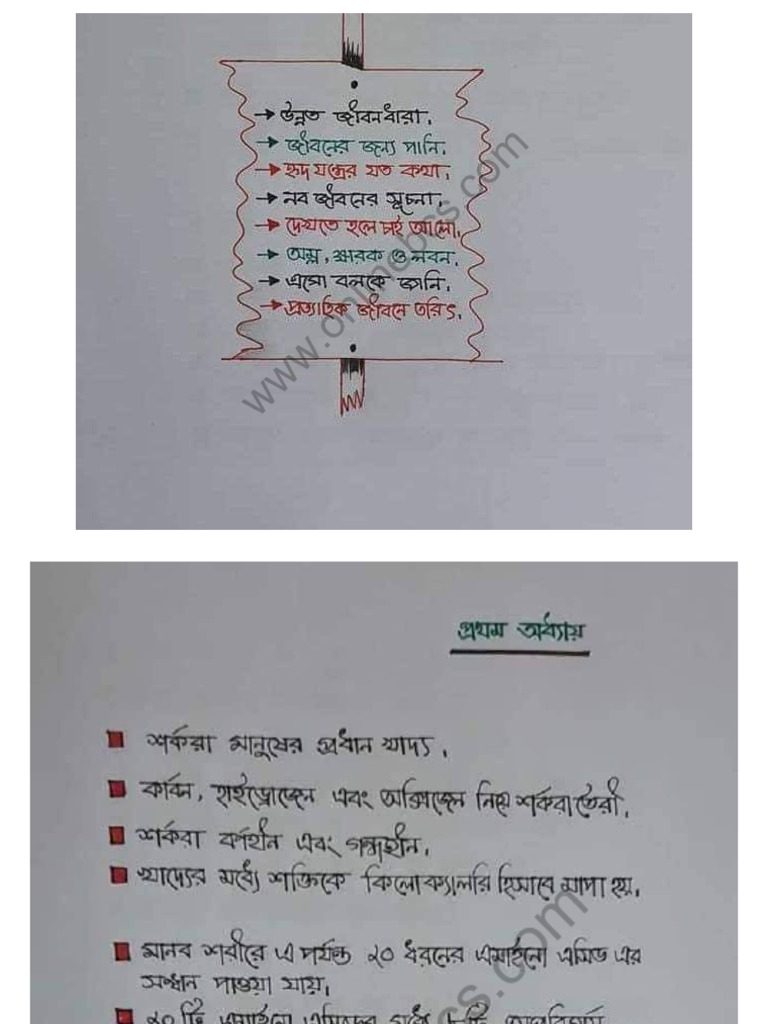 → উন্নত জীবনধারা.
→ জীবনের জন্য পানি.
→ হৃদ যন্ত্রের যত কথা.
→ নব জীবনের সূচনা.
→ দেখতে হলে চাই আলো.
→ অম্ল, ক্ষারক ও লবন.
→ এসো বলকে জানি.
→ প্রত্যাহিক জীবনে তরিৎ.
www.onlinebcs.com
প্রথম অধ্যায়
শর্করা মানুষের প্রধান খাদ্য.
কার্বন, হাইড্রোজেন এবং অক্সিজেন নিয়ে শর্করা তৈরী.
শর্করা বর্ণহীন এবং গন্ধহীন.
খাদ্যের মধ্যে শক্তিকে কিলোক্যালরি হিসাবে মাপা হয়.
মানব শরীরে এ পর্যন্ত ২০ ধরনের এমাইনো এসিড এর
সন্ধান পাওয়া যায়.
২০ টি এমাইনো এসিডের মধ্যে ৮টি
cs.com